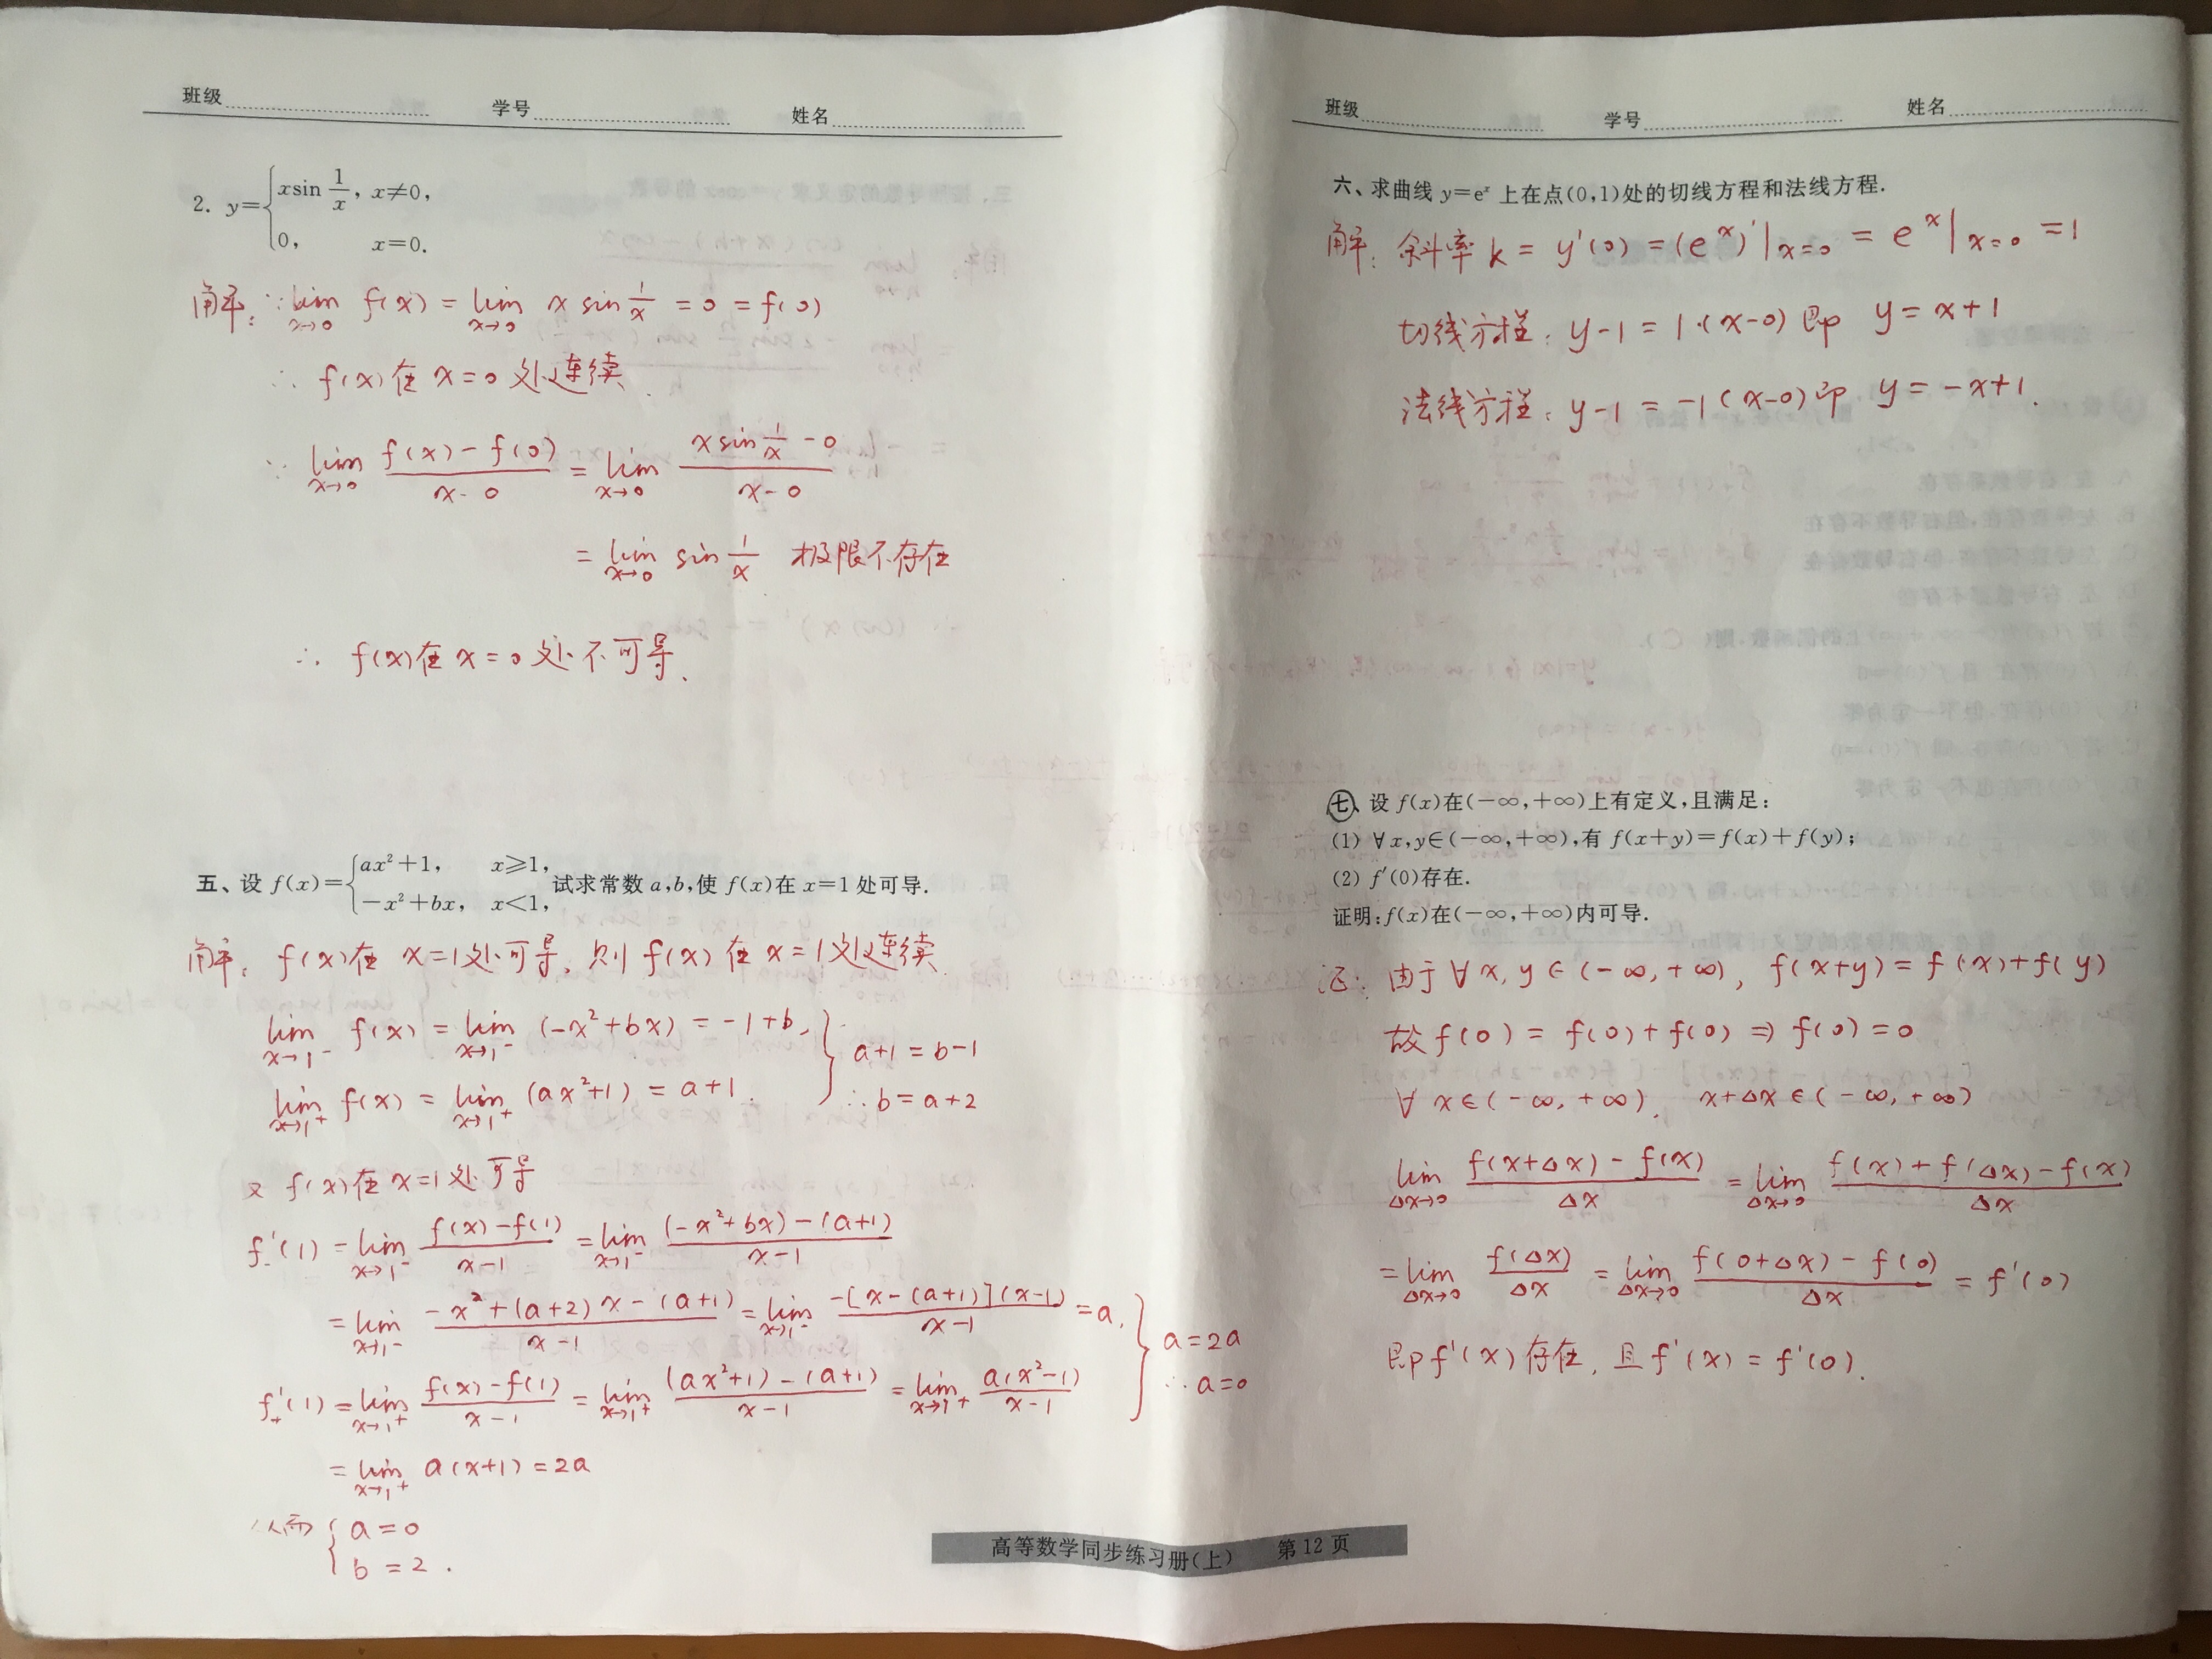 班级 学号 姓名
2. y={xsin 1/x, x≠0,
0, x=0.
解: ∵ lim x→0 f(x) = lim x→0 x sin 1/x = 0 = f(0)
∴ f(x)在 x=0 处连续.
∵ lim x→0 (f(x)-f(0))/(x-0) = lim x→0 (x sin 1/x - 0)/(x-0)
= lim x→0 sin 1/x 极限不存在
∴ f(x)在 x=0 处不可导.
五、设 f(x)={ax²+1, x≥1, -x²+bx, x<1, 试求常数 a,b,使 f(x)在 x=1 处可导.
解: f(x)在 x=1处可导, 则 f(x) 在 x=1处连续.
lim x→1⁻ f(x) = lim x→1⁻ (-x²+bx) = -1+b,
lim x→1⁺ f(x) = lim x→1⁺ (ax²+1) = a+1.
} a+1 = b-1
∴ b = a+2
又 f(x)在 x=1处可导
f₋'(1) = lim x→1⁻ (f(x)-f(1))/(x-1) = lim x→1⁻ ((-x²+bx)-(a+1))/(x-1)
= lim x→1⁻ (-x²+(a+2)x-(a+1))/(x-1) = lim x→1⁻ (-[x-(a+1)](x-1))/(x-1) = a,
f₊'(1) = lim x→1⁺ (f(x)-f(1))/(x-1) = lim x→1⁺ ((ax²+1)-(a+1))/(x-1) = lim x→1⁺ a(x²-1)/(x-1)
= lim x→1⁺ a(x+1) = 2a
} a=2a
∴ a=0
从而 { a=0
b=2.
班级 学号 姓名
六、求曲线 y=eˣ 上在点(0,1)处的切线方程和法线方程.
解: 斜率 k = y'(0) = (eˣ)'|x=0 = eˣ|x=0 = 1
切线方程: y-1 = 1·(x-0) 即 y = x+1
法线方程: y-1 = -1(x-0) 即 y = -x+1.
七、设 f(x)在(-∞,+∞)上有定义,且满足:
(1) ∀x,y∈(-∞,+∞),有 f(x+y)=f(x)+f(y);
(2) f'(0)存在.
证明:f(x)在(-∞,+∞)内可导.
证: 由于∀x, y∈(-∞,+∞), f(x+y) = f(x)+f(y)
故 f(0) = f(0)+f(0) ⇒ f(0) = 0
∀ x∈(-∞,+∞), x+Δx∈(-∞,+∞)
lim Δx→0 (f(x+Δx)-f(x))/Δx = lim Δx→0 (f(x)+f(Δx)-f(x))/Δx
= lim Δx→0 f(Δx)/Δx = lim Δx→0 (f(0+Δx)-f(0))/Δx = f'(0)
即f'(x)存在, 且 f'(x) = f'(0).
高等数学同步练习册(上) 第12页